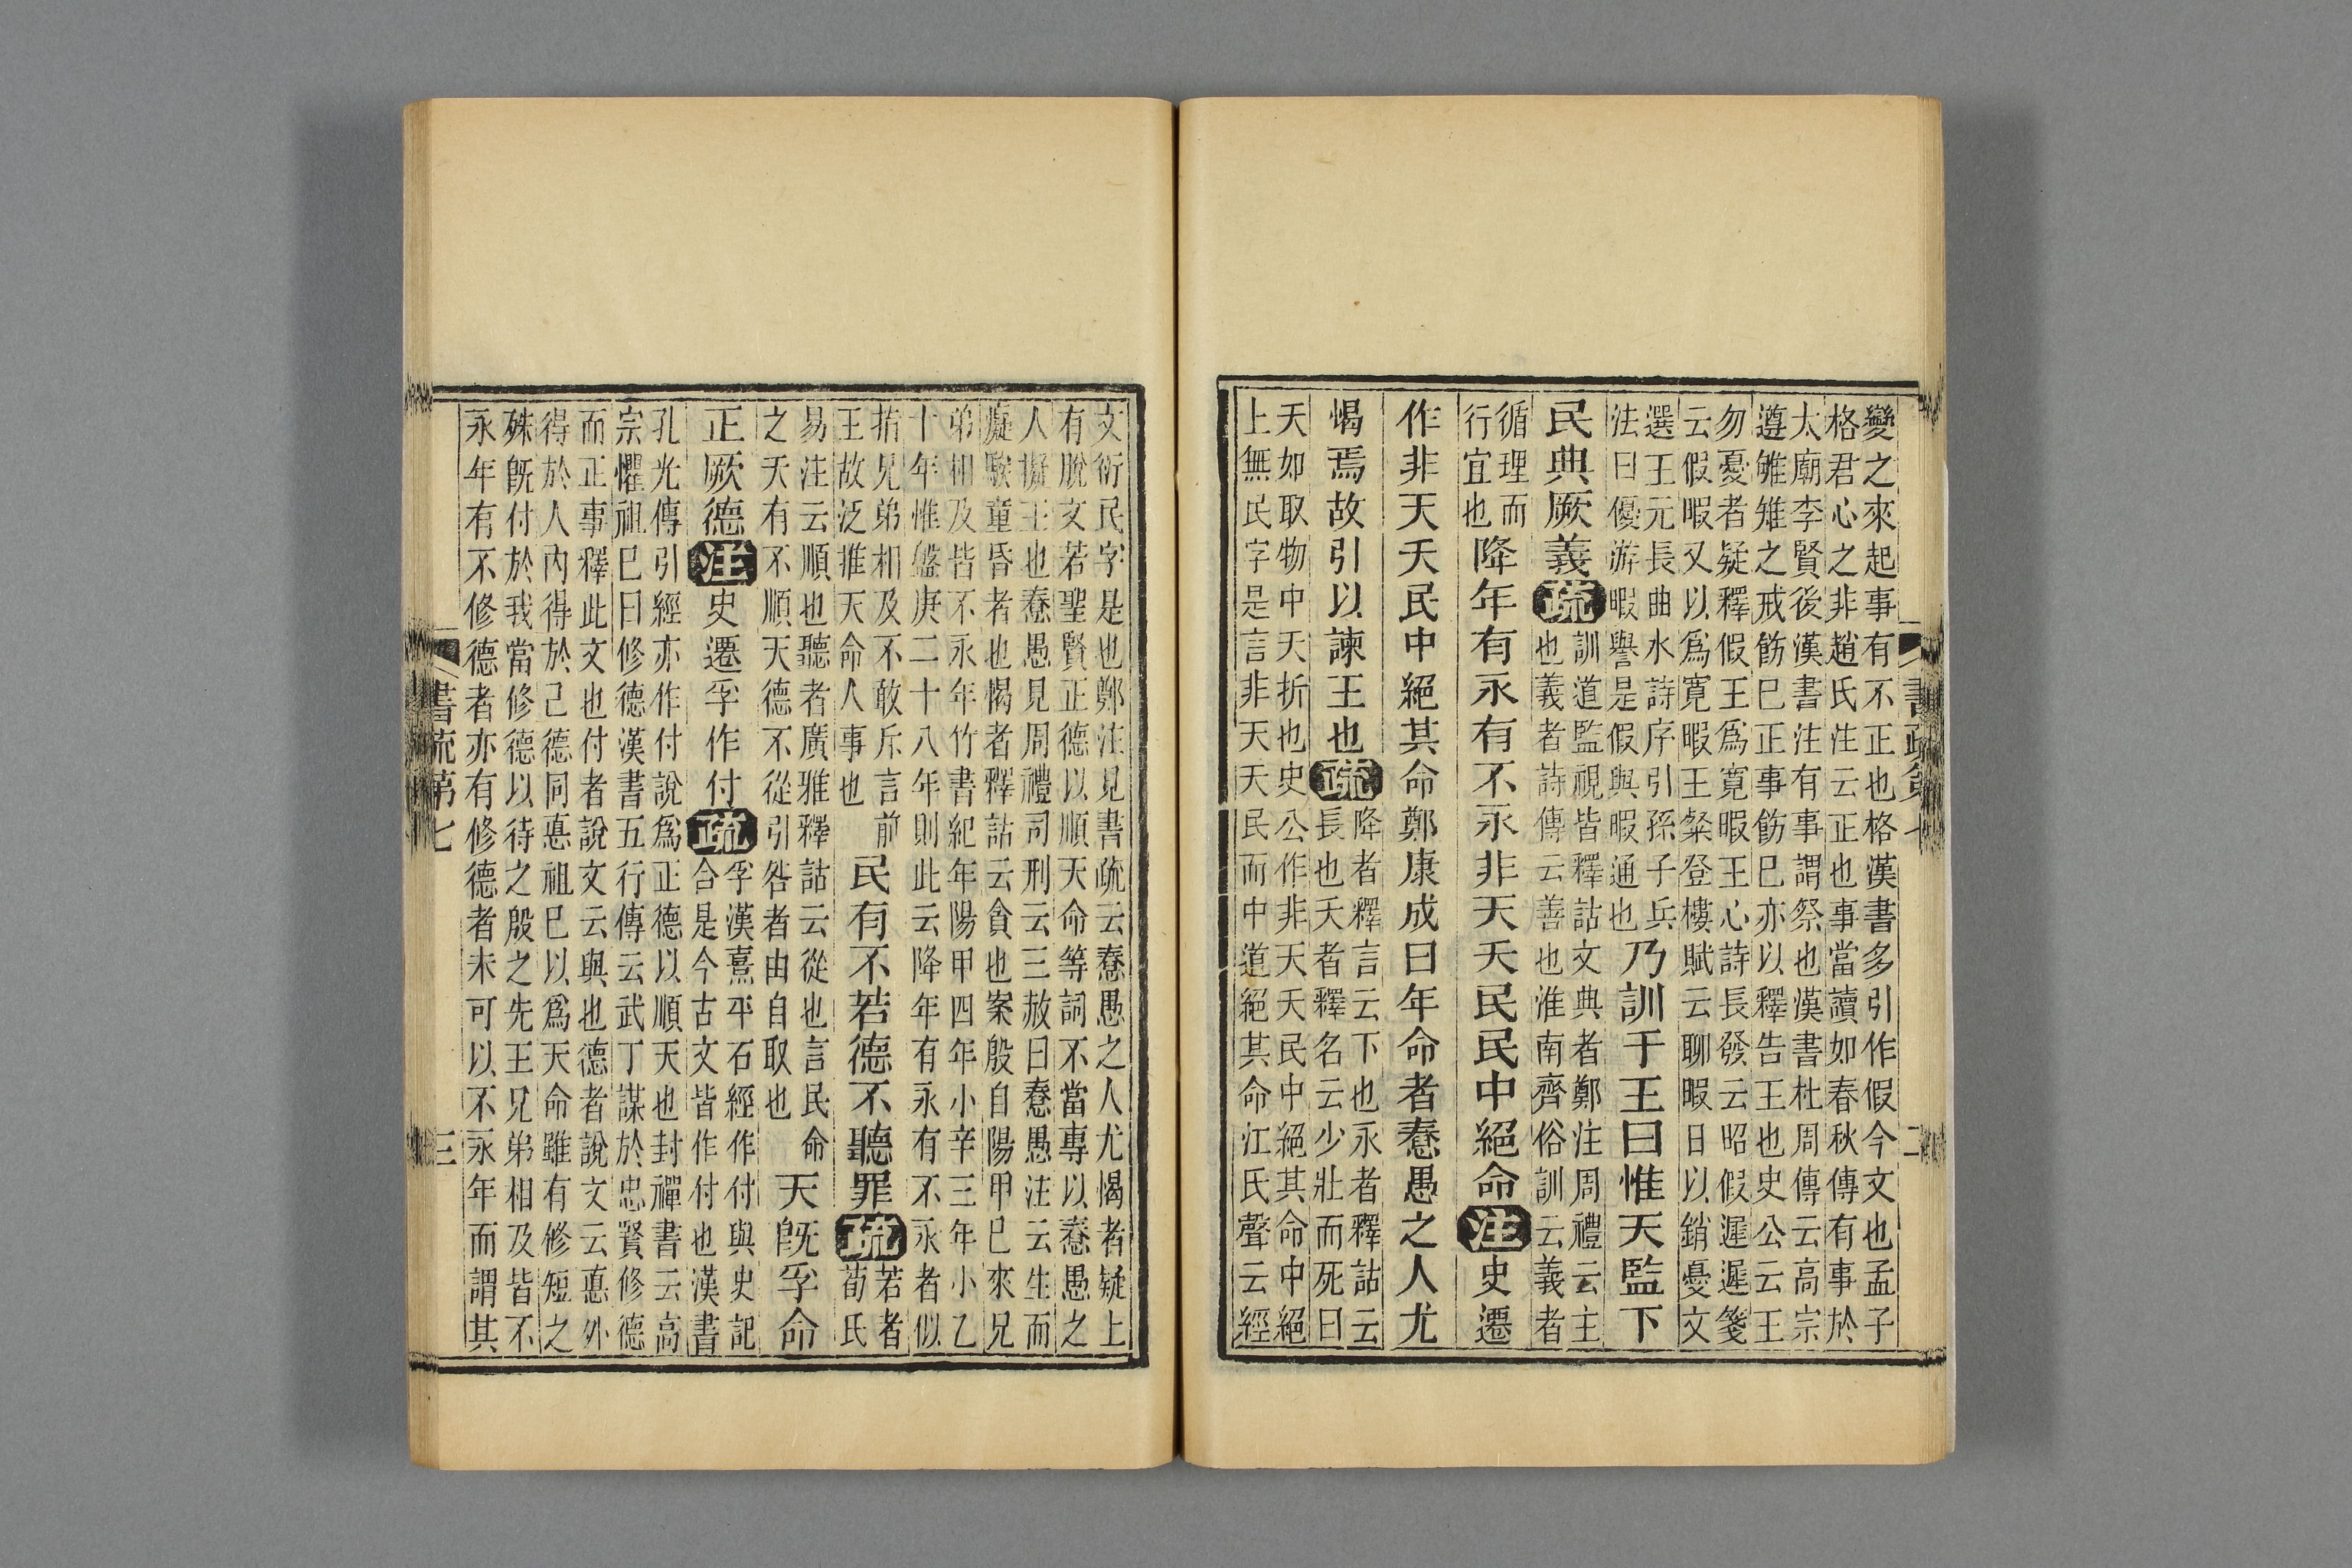 變之來起事有不正也格漢書多引作假今文也孟子
格君心之非趙氏注云正也事當讀如春秋傳有事於
太廟李賢後漢書注有事謂祭也漢書杜周傳云高宗
遵雊雉之戒飭巳正事飭巳亦以釋告王也史公云王
勿憂者疑釋假王爲寛暇王心詩長發云昭假遲遲箋
云假暇又以爲寛暇王粲登樓賦云聊暇日以銷憂文
選王元長曲水詩序引孫子兵
法曰優游暇譽是假與暇通也
乃訓于王曰惟天監下
民典厥義疏
訓道監視皆釋詁文典者鄭注周禮云主
也義者詩傳云善也淮南齊俗訓云義者
循理而
行宜也
降年有永有不永非天夭民民中絕命注史遷
作非天夭民中絕其命鄭康成曰年命者惷愚之人尤
愒焉故引以諫王也疏
降者釋言云下也永者釋詁云
長也夭者釋名云少壯而死曰
夭如取物中夭折也史公作非天夭民中絕其命中絕
上無民字是言非天夭民而中道絕其命江氏聲云經
書疏第七
二
文衍民字是也鄭注見書疏云惷愚之人尤愒者疑上
有脫文若聖賢正德以順天命等詞不當專以惷愚之
人擬王也惷愚見周禮司刑云三赦曰惷愚注云生而
癡騃童昏者也愒者釋詁云貪也案殷自陽甲巳來兄
弟相及皆不永年竹書紀年陽甲四年小辛三年小乙
十年惟盤庚二十八年則此云降年有永有不永者似
指兄弟相及不敢斥言前
王故泛推天命人事也
民有不若德不聽罪疏
若者
荀氏
易注云順也聽者廣雅釋詁云從也言民命
之夭有不順天德不從引咎者由自取也
天旣孚命
正厥德注史遷孚作付疏
孚漢熹平石經作付與史記
合是今古文皆作付也漢書
孔光傳引經亦作付說爲正德以順天也封禪書云高
宗懼祖巳曰修德漢書五行傳云武丁謀於忠賢修德
而正事釋此文也付者說文云與也德者說文云悳外
得於人內得於己德同悳祖巳以爲天命雖有修短之
殊旣付於我當修德以待之殷之先王兄弟相及皆不
永年有不修德者亦有修德者未可以不永年而謂其
書疏第七
三